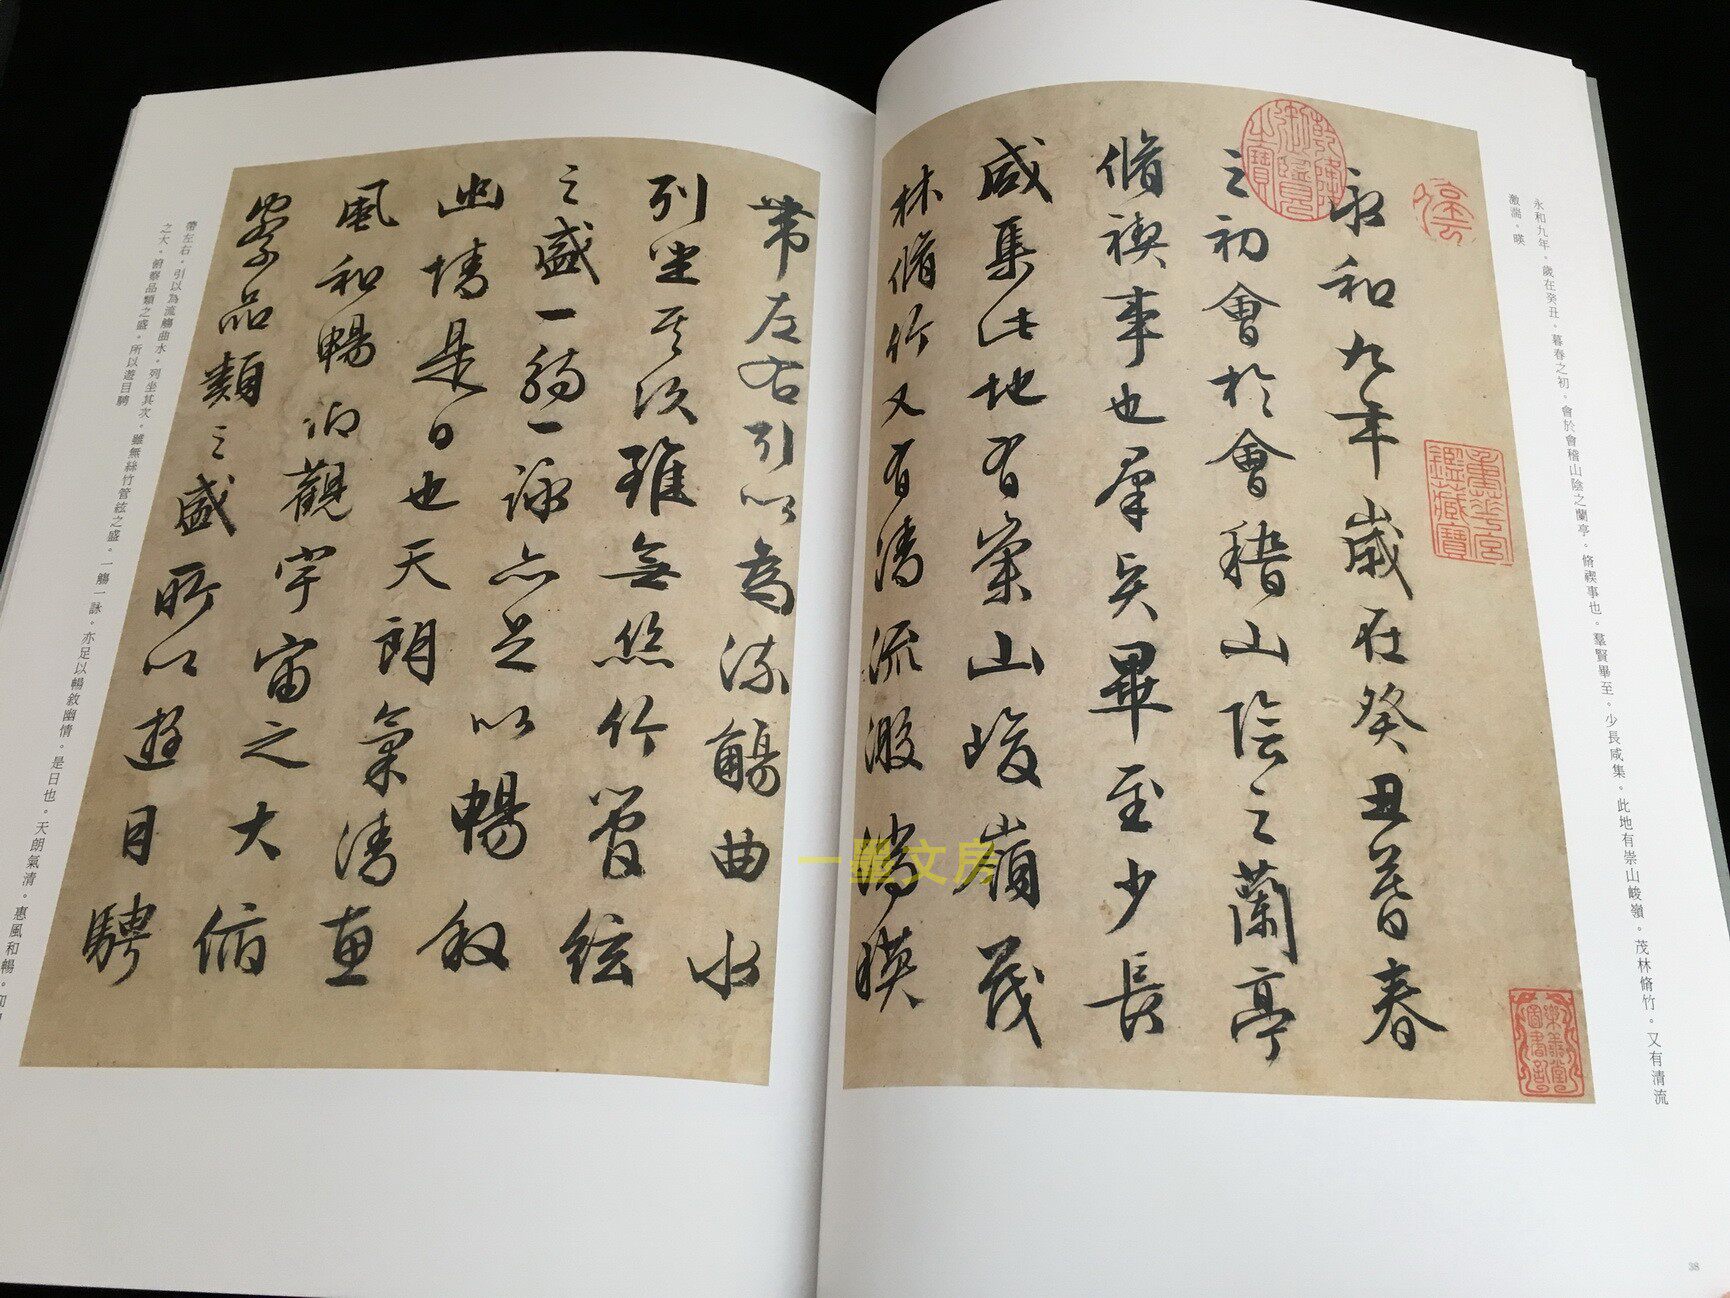 永和九年。歲在癸丑。暮春之初。會於會稽山陰之蘭亭。脩禊事也。羣賢畢至。少長咸集。此地有崇山峻嶺。茂林脩竹。又有清流
激湍。暎
重華宮鑑藏寶
樂善堂圖書記
永和九年歲在癸丑暮春
乾隆御覽之寶
之初會於會稽山陰之蘭亭
脩禊事也羣賢畢至少長
咸集此地有崇山峻嶺茂
林脩竹又有清流激湍暎
帶左右引以為流觴曲水
列坐其次雖無絲竹管絃
之盛一觴一詠亦足以暢敘
幽情是日也天朗氣清惠
風和暢仰觀宇宙之大俯
察品類之盛所以遊目騁
帶左右。引以為流觴曲水。列坐其次。雖無絲竹管絃之盛。一觴一詠。亦足以暢敘幽情。是日也。天朗氣清。惠風和暢。仰
之大。俯察品類之盛。所以遊目騁
一墨文房
38